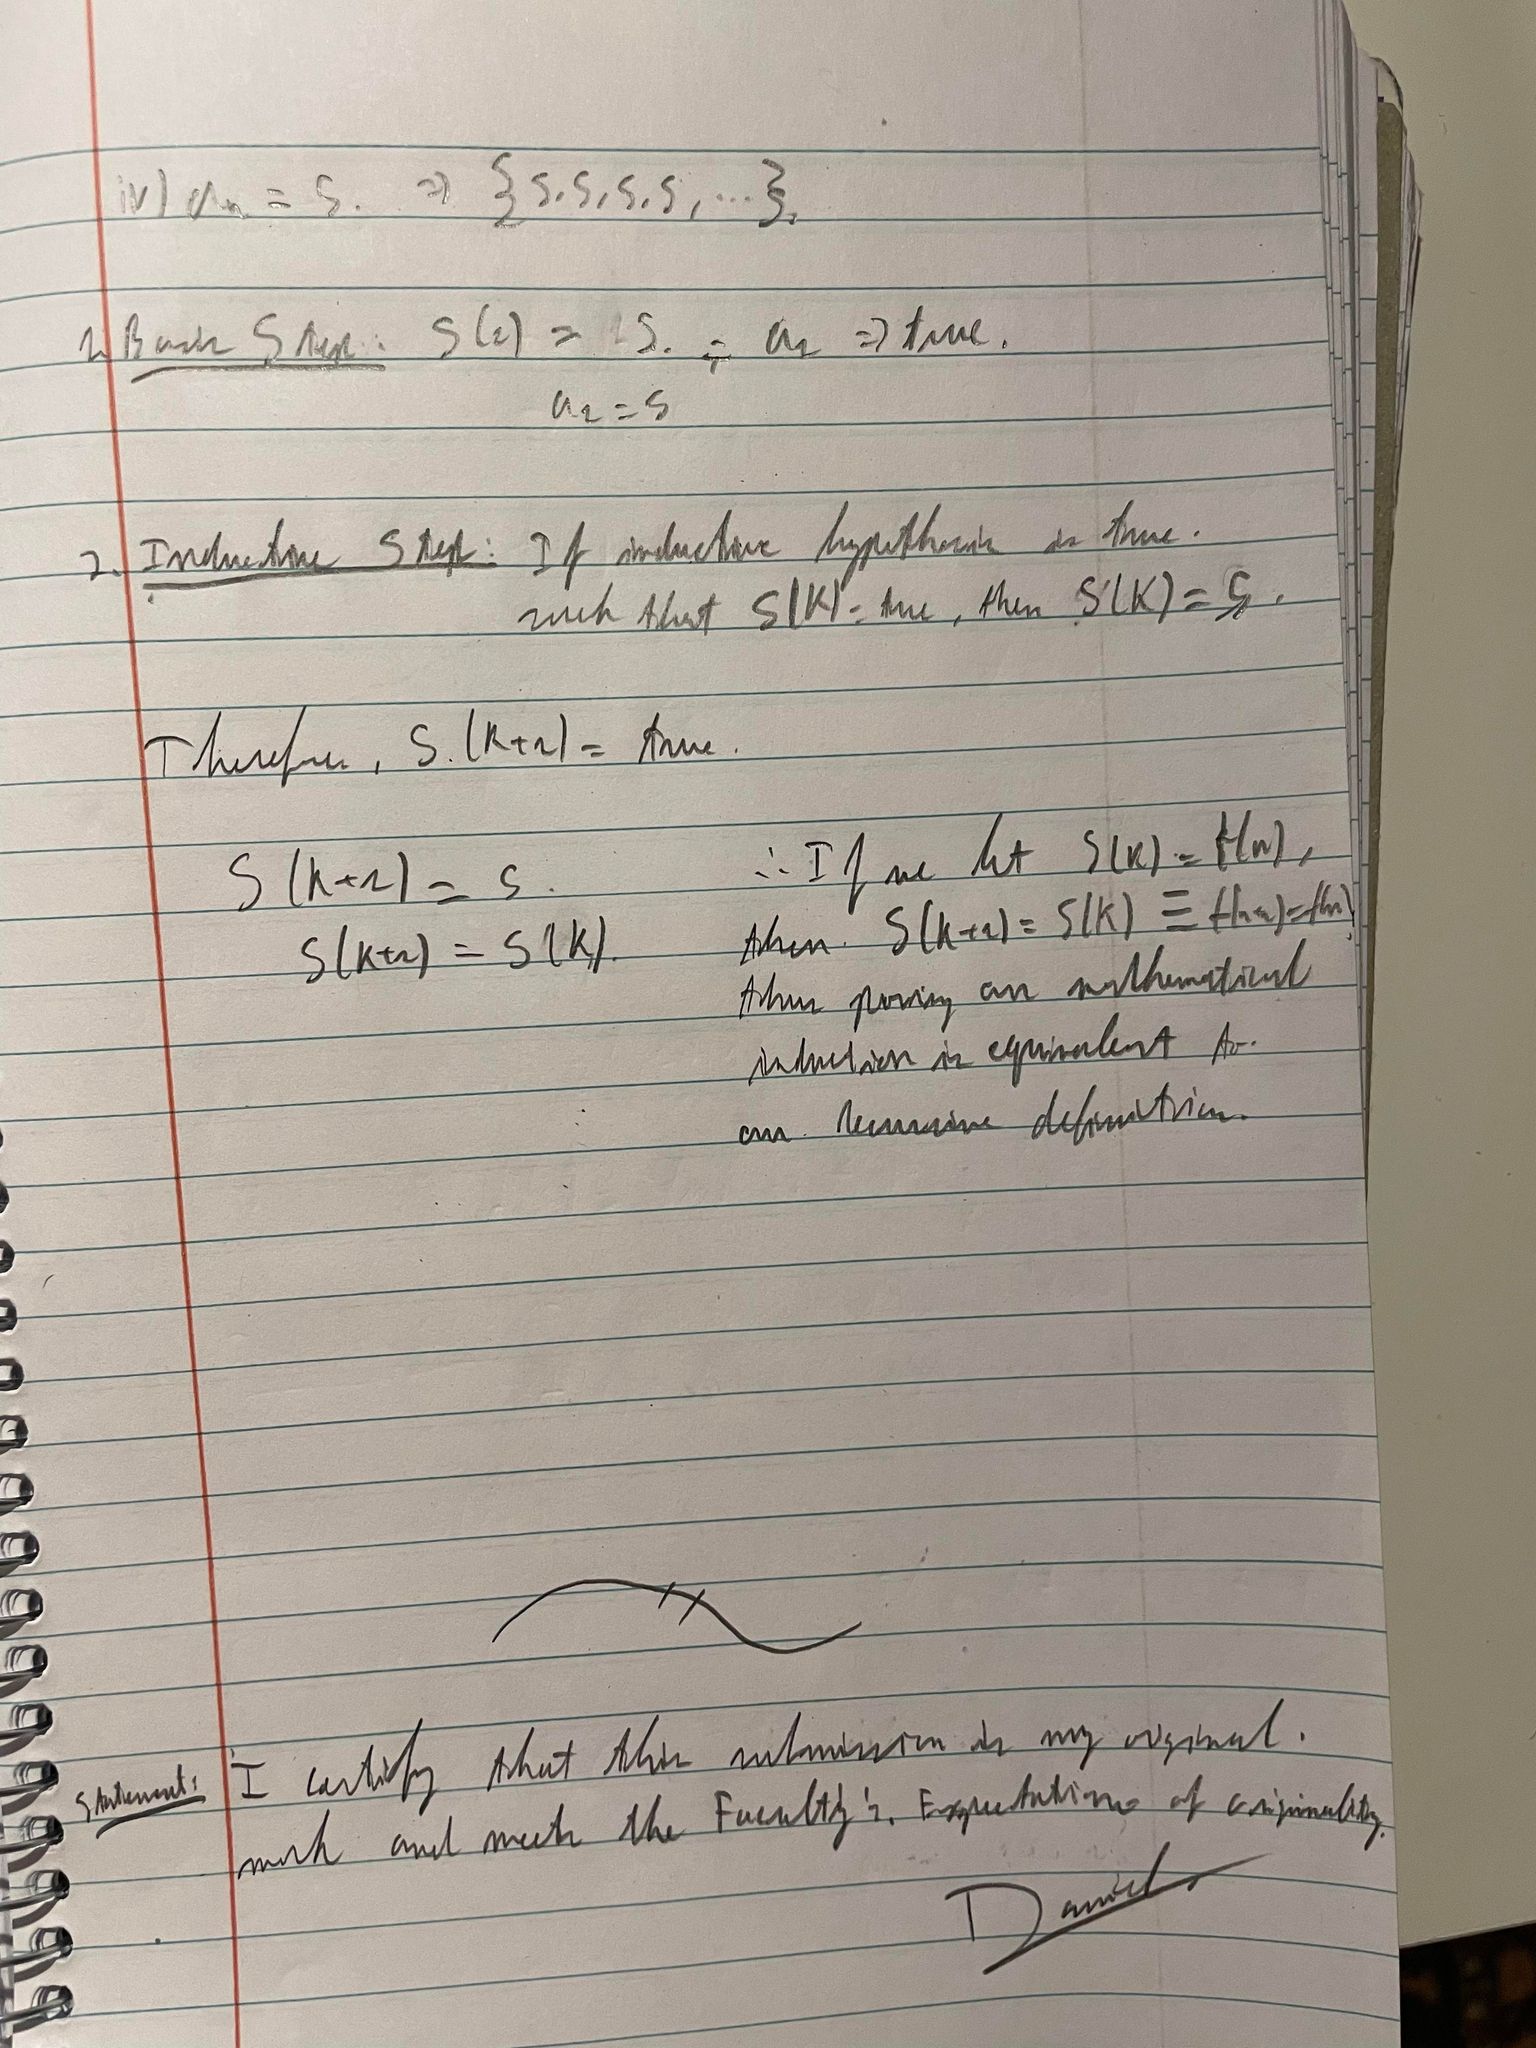 iv) an = 5. => {5, 5, 5, 5, ...}.
1. Basis Step: S(1) = 5. = a1 => true.
a1 = 5
2. Inductive Step: If inductive hypothesis is true.
such that S(K) = true, then S(K) = 5.
Therefore, S(K+1) = true.
S(K+1) = 5.
S(K+1) = S(K).
∴ If we let S(K) = f(n),
then S(K+1) = S(K) ≡ f(n+1) = f(n)
then proving an mathematical
induction is equivalent to
an recursive definition.
Statement: I certify that this submission is my original
work and meets the Faculty's Expectations of originality.
Daniel